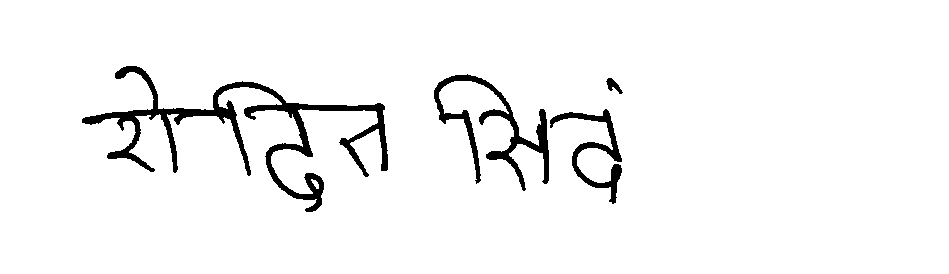 रोहित सिंदं